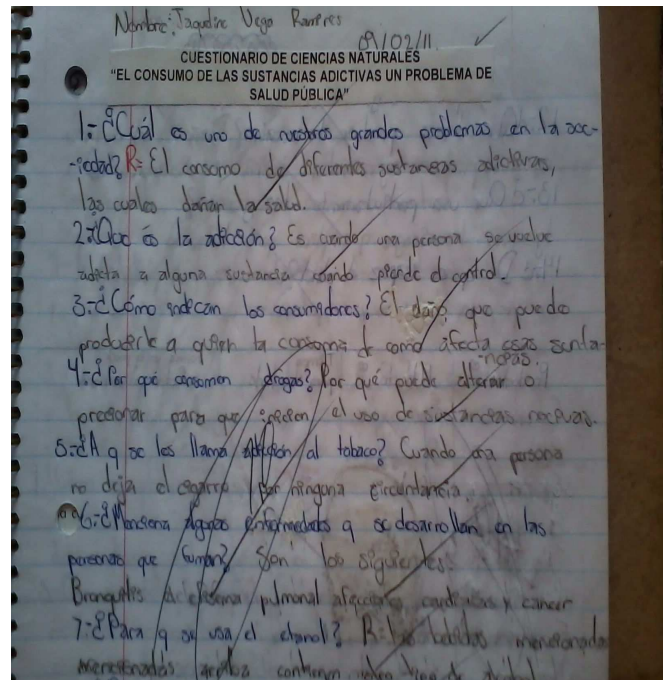 Nombre: Jaqueline Vega Ramires
09/02/11
CUESTIONARIO DE CIENCIAS NATURALES
"EL CONSUMO DE LAS SUSTANCIAS ADICTIVAS UN PROBLEMA DE
SALUD PÚBLICA"
1:-¿Cuál es uno de nuestros grandes problemas en la soc-
-iedad? R= El consumo de diferentes sustancias adictivas,
las cuales dañan la salud.
2:-¿Que es la adicción? Es cuando una persona se vuelve
adicta a alguna sustancia cuando pierde el control.
3:-¿Cómo indican los consumidores? El daño que puede
producirle a quien la consoma de como afecta esas susta-
-ncias.
4:-¿Por qué consumen drogas? Por qué puede alterar o
presionar para que inicien el uso de sustancias nocivas.
5:-¿A q se les llama adicción al tabaco? Cuando una persona
no deja el cigarro por ninguna circuntancia
6:-¿Menciona algunas enfermedades q se desarrollan en las
personas que fuman? Son los siguientes
Bronquitis pulmonal cardiacas y cancer
7:-¿Para q se usa el etanol? R= las bebidas mencionadas
mencionadas arriba contienen